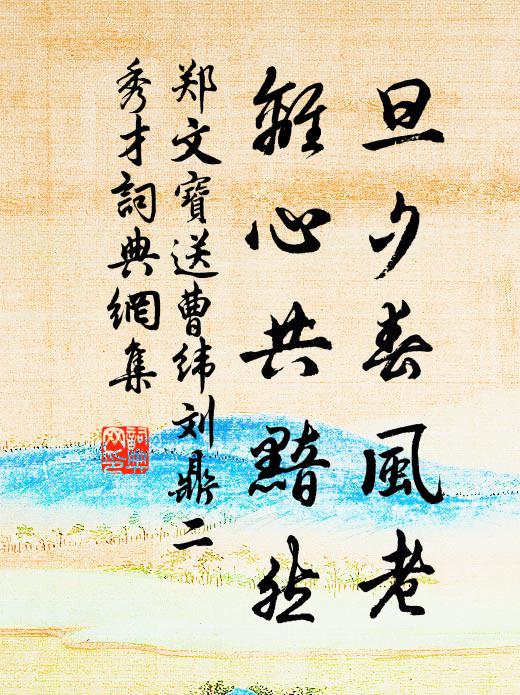 旦夕春風老
離心共黯然
郑文寶送曹纬刘鼎二
秀才詞典網集